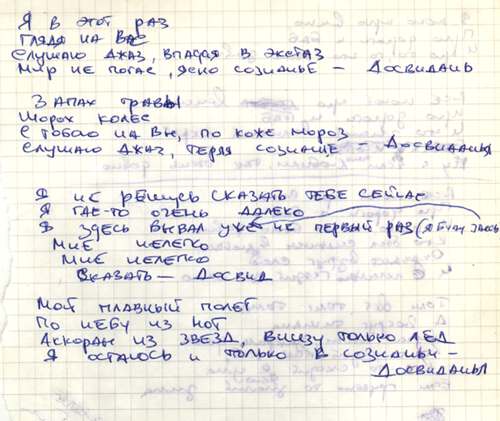 Я в этот раз
Глядя на Вас
Слушаю джаз, впадая в экстаз
Мир не погас, ясно сознанье – Досвидань
Запах травы
Шорох колес
С тобою на Вы, по коже мороз
Слушаю джаз, теряя сознание – Досвиданья
Я не решусь сказать тебе сейчас
Я где-то очень далеко
Я здесь бывал уже не первый раз (я буду здесь
Мне нелегко
Мне нелегко
Сказать – Досвид
Мой плавный полет
По небу из нот
Аскоран из звезд, внизу только лёд
Я останусь и только в сознаньи –
Досвиданья